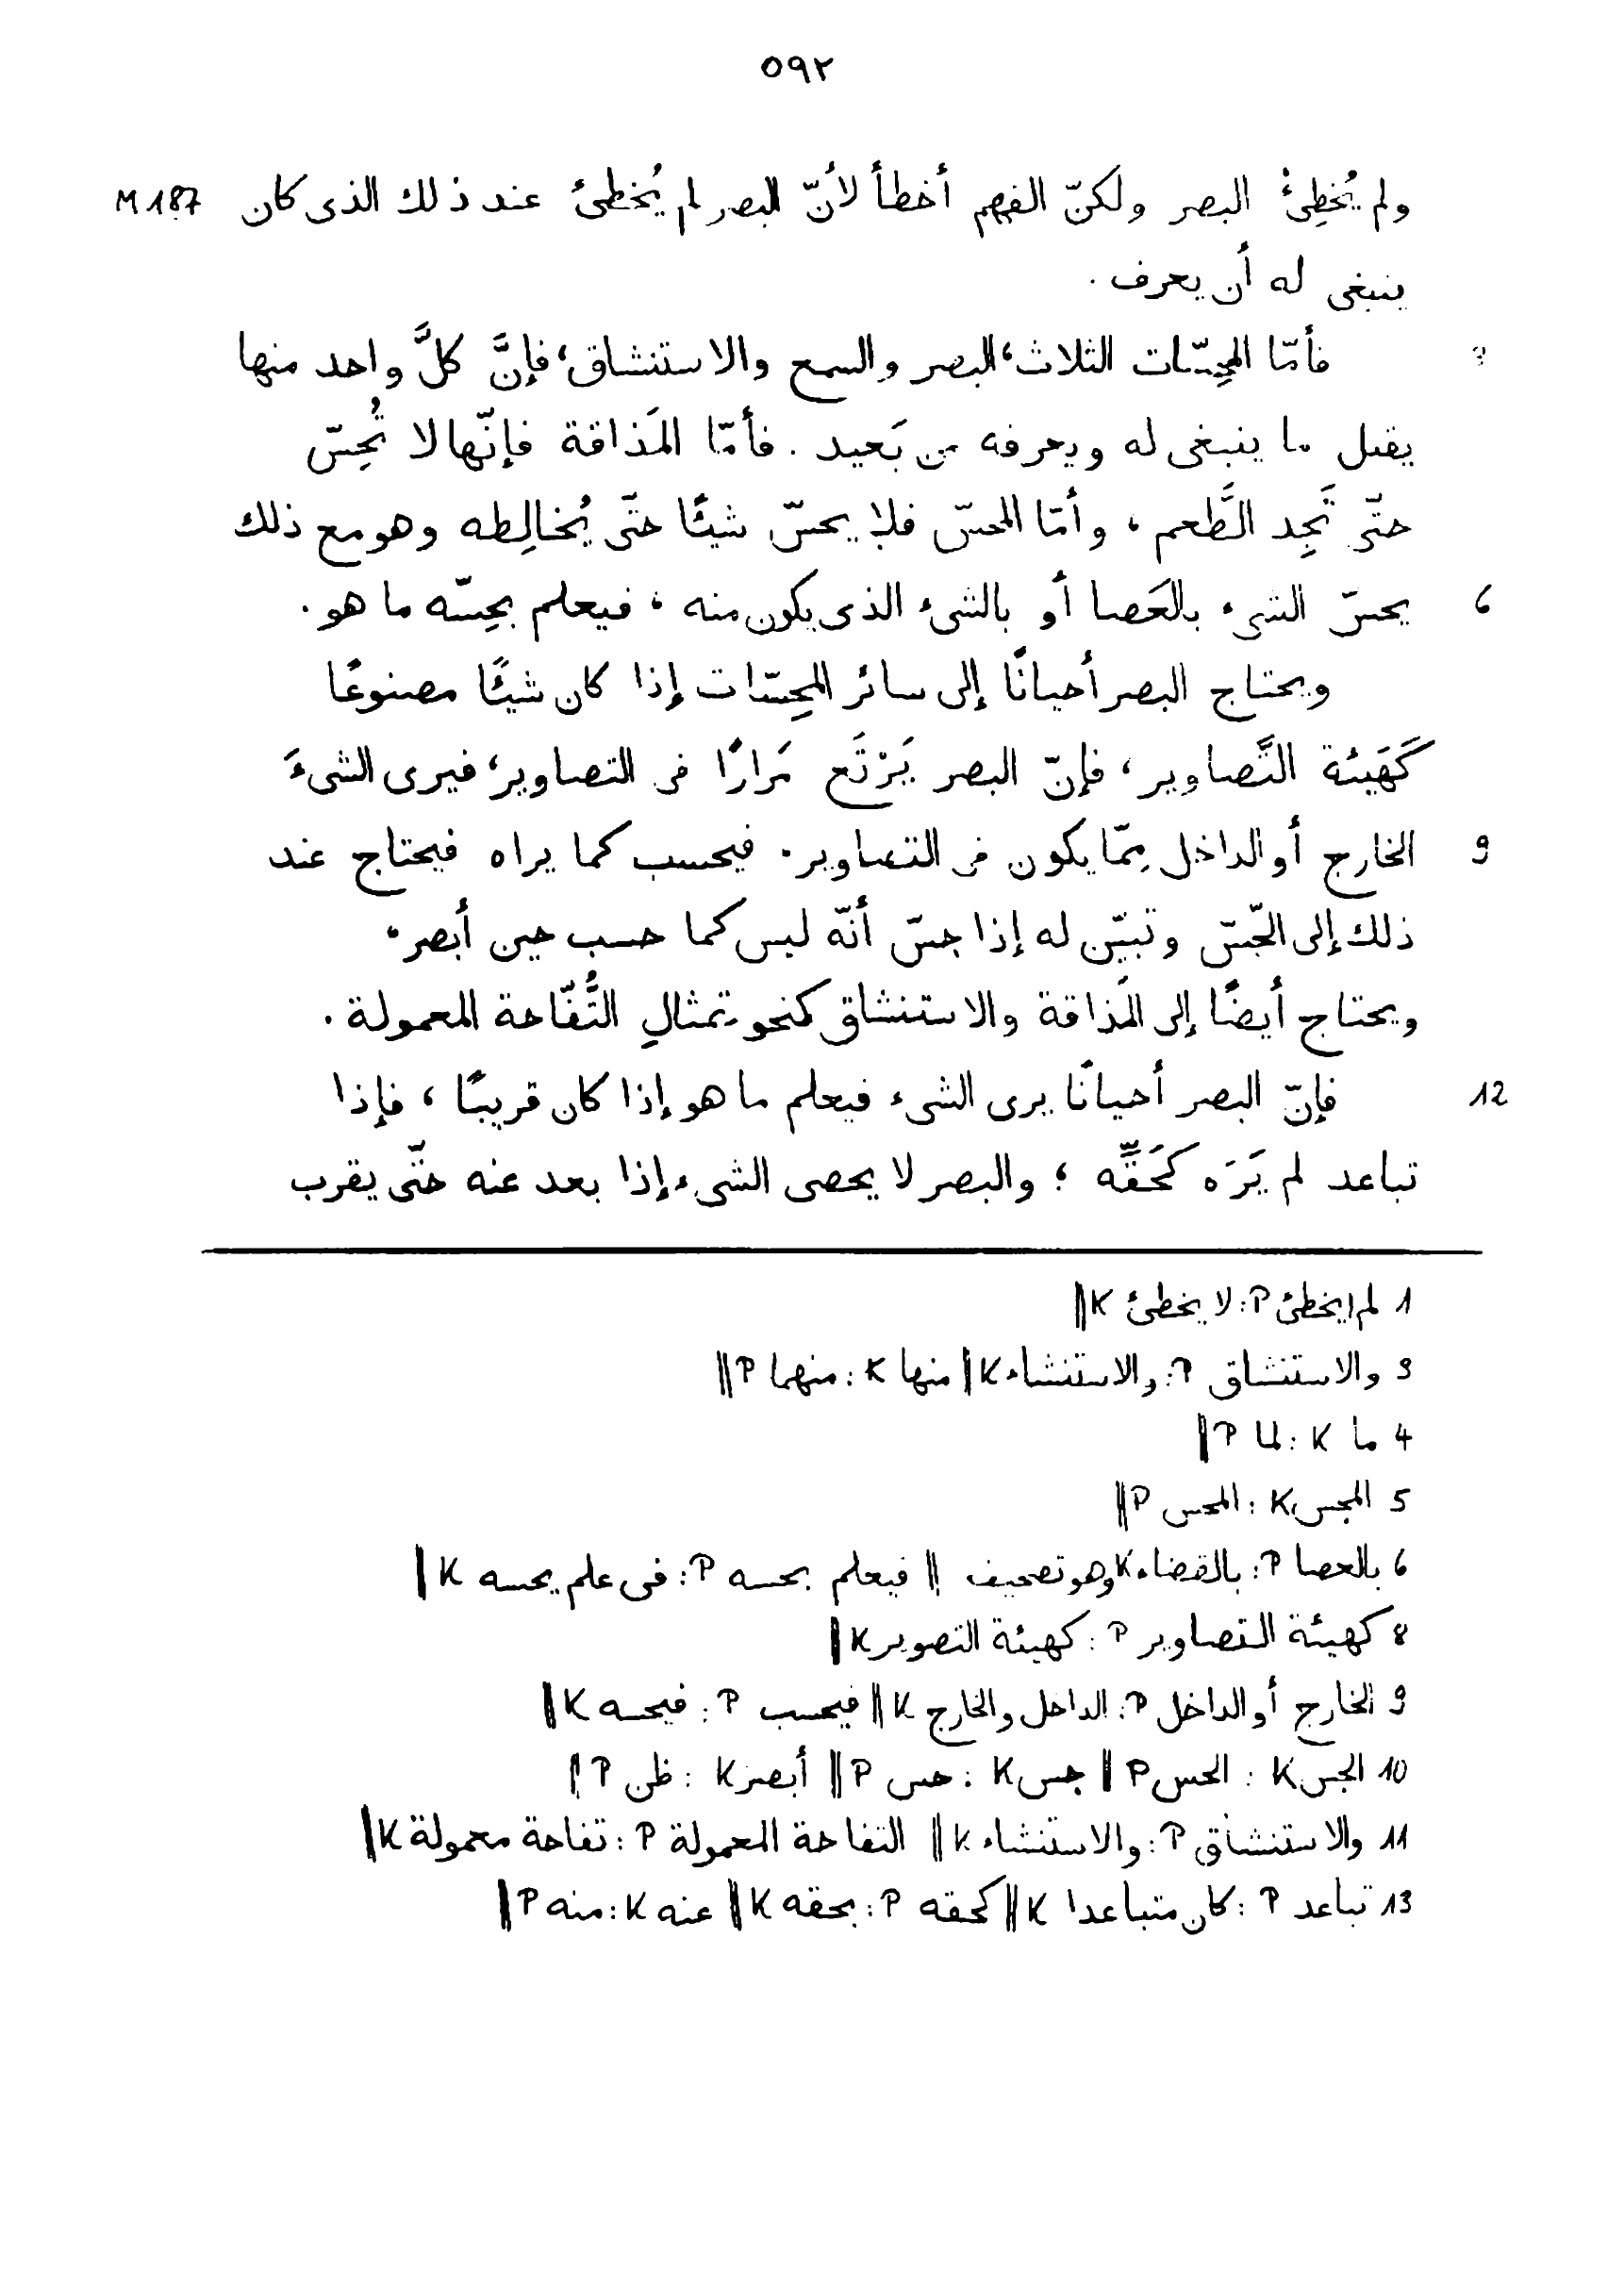 ٥٩٢
ولم يُخطِئْ البصر ولكنّ الفهم أخطأ لأنّ البصر لم يُخطئ عند ذلك الذى كان M 187
ينبغى له أن يعرف .
فأمّا المجِسّات الثلاث، البصر والسمع والاستنشاق، فإنَّ كلَّ واحد منها 3
يقبل ما ينبغى له ويعرفه من بَعيد . فأمّا المَذاقة فإنّها لا تُحِسّ
حتّى تَجِد الطَّعم ، وأمّا المجسّ فلا يحسّ شيئًا حتّى يُخالِطه وهو مع ذلك
يحسّ الشىء بالعَصا أو بالشىء الذى يكون منه ، فيعلم بحِسّه ما هو . 6
ويحتاج البصر أحيانًا إلى سائر المجِسّات إذا كان شيئًا مصنوعًا
كَهَيئة التَّصاوير ، فإنّ البصر يَرْتَع مَرارًا فى التصاوير، فيرى الشىءَ
الخارج أو الداخل مِمّا يكون فى التصاوير . فيحسب كما يراه فيحتاج عند 9
ذلك إلى الجَسّ وتبيّن له إذا جسّ أنّه ليس كما حسب حين أبصر .
ويحتاج أيضًا إلى المَذاقة والاستنشاق كنحو تمثالِ التُّفّاحة المعمولة .
فإنّ البصر أحيانًا يرى الشىء فيعلم ما هو إذا كان قريبًا ، فإذا 12
تباعد لم يَرَه كَحَقِّه ؛ والبصر لا يحصى الشىء إذا بعد عنه حتّى يقرب
1 لم يخطئ P : لا يخطئ K ||
3 والاستنشاق P : والاستنشاء K || منها K : منهما P ||
4 ما K : لما P ||
5 المجس K : المحس P ||
6 بالعصا P : بالقضاء K وهو تصحيف || فيعلم بحسه P : فى علم يحسه K ||
8 كهيئة التصاوير P : كهيئة التصوير K ||
9 الخارج أو الداخل P : الداخل والخارج K || فيحسب P : فيحسه K ||
10 الجس K : الحس P || جس K : حس P || أبصر K : ظن P ||
11 والاستنشاق P : والاستنشاء K || التفاحة المعمولة P : تفاحة معمولة K ||
13 تباعد P : كان متباعدا K || كحقه P : بحقه K || عنه K : منه P ||